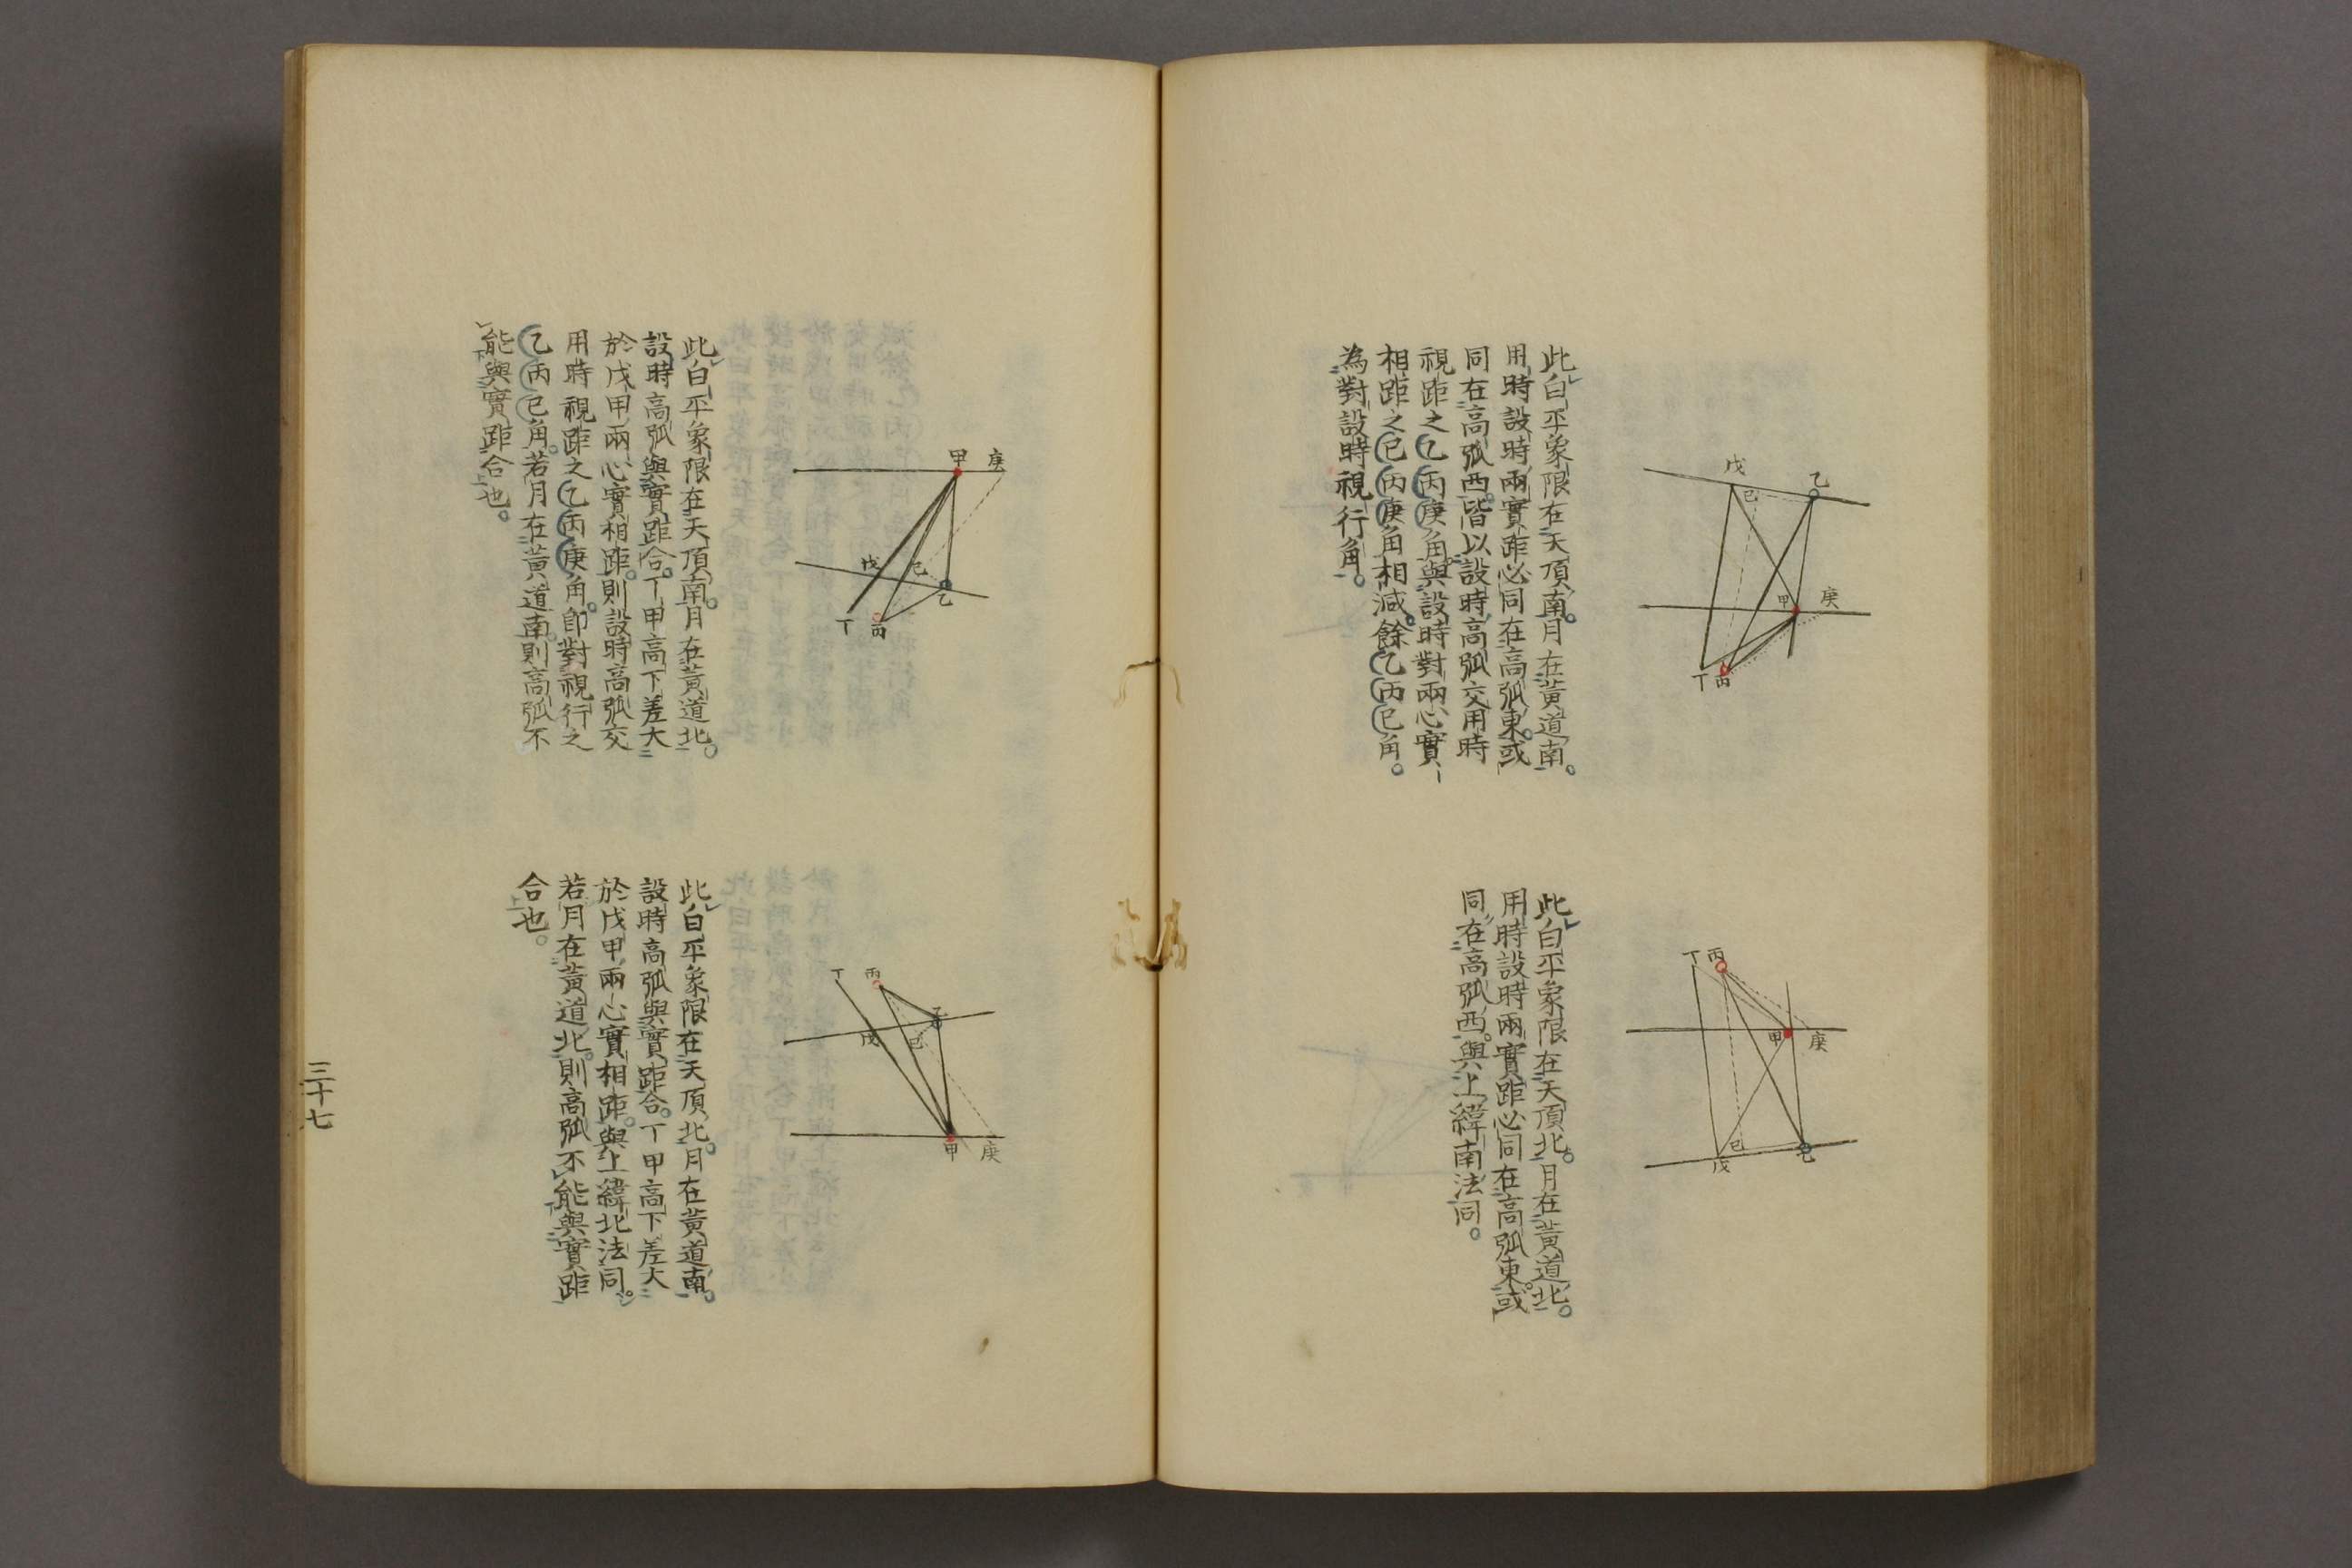 戊
己
乙
甲
庚
丁
丙
此白平象限在天頂南。月在黃道南。
用時設時兩實距必同在高弧東。或
同在高弧西。皆以設時高弧交用時
視距之乙丙庚角。與設時對兩心實
相距之己丙庚角相減。餘乙丙己角。
為對設時視行角。
丁
丙
甲
庚
己
戊
乙
此白平象限在天頂北。月在黃道北。
用時設時兩實距必同在高弧東。或
同在高弧西。與上緯南法同。
甲
庚
戊
己
乙
丁
丙
此白平象限在天頂南。月在黃道北。
設時高弧與實距合。丁甲高下差大
於戊甲兩心實相距。則設時高弧交
用時視距之乙丙庚角。即對視行之
乙丙己角。若月在黃道南。則高弧不
能與實距合也。
丁
丙
乙
戊
己
甲
庚
此白平象限在天頂北。月在黃道南。
設時高弧與實距合。丁甲高下差大
於戊甲兩心實相距。與上緯北法同。
若月在黃道北。則高弧不能與實距
合也。
三十七